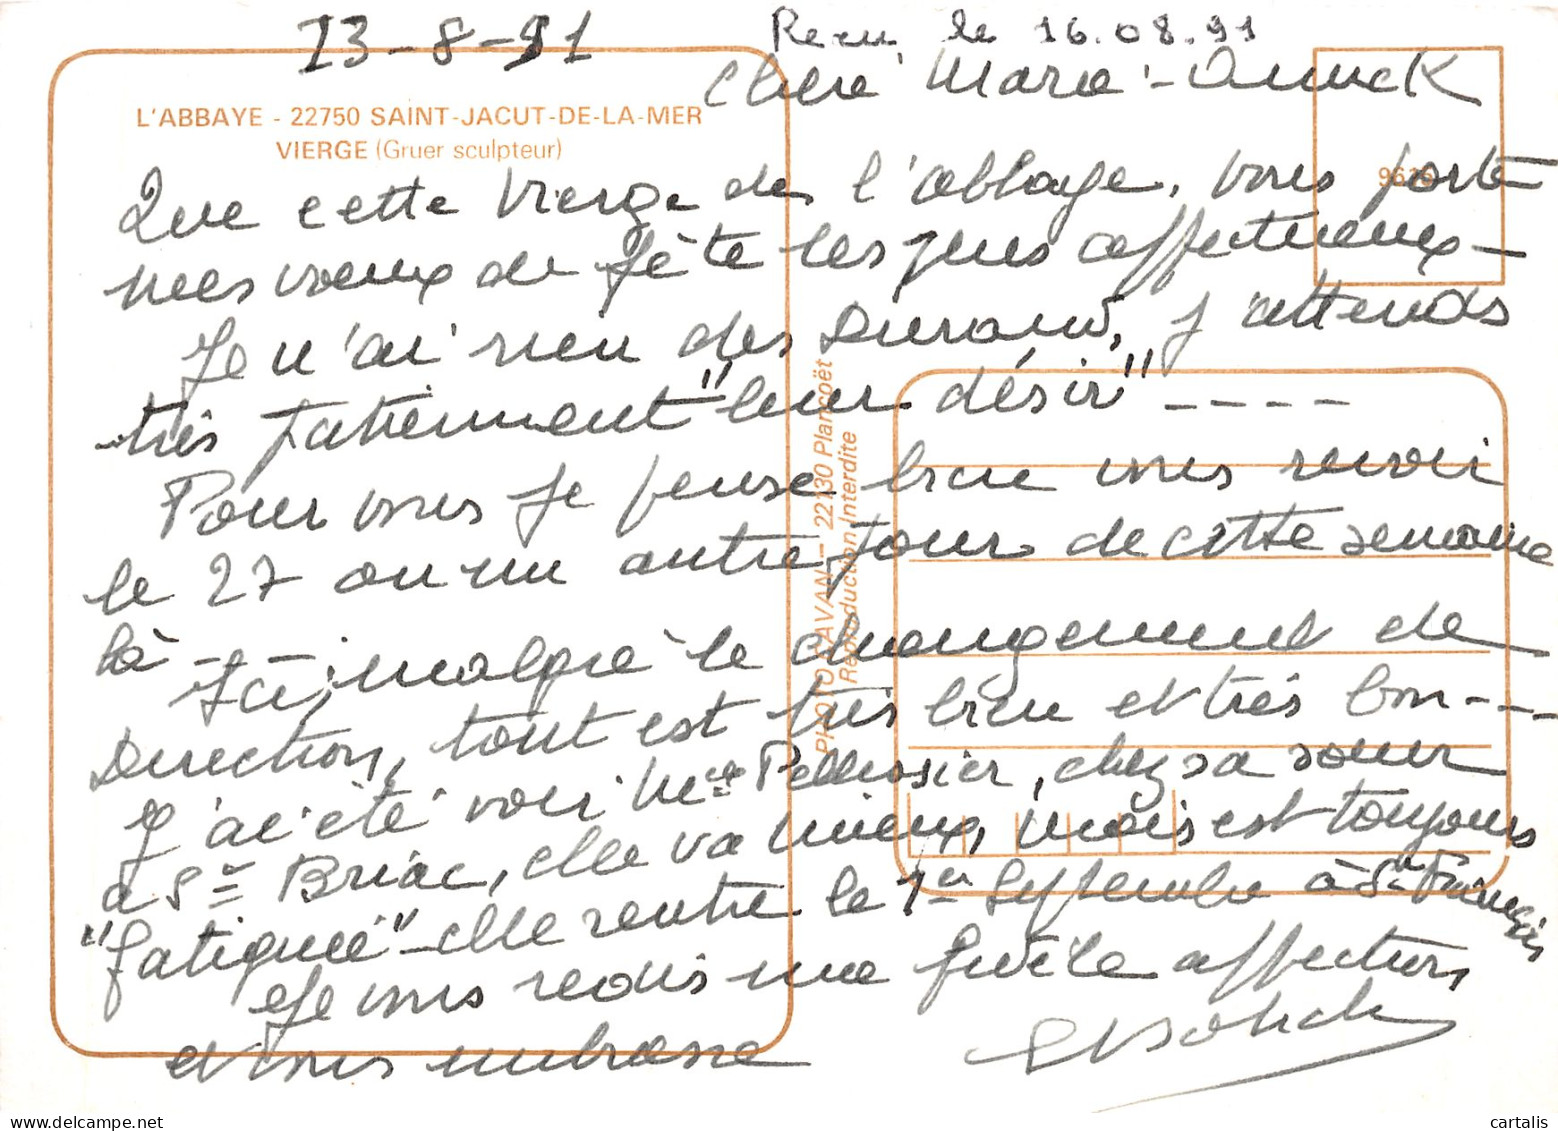 13-8-91
Recu, le 16.08.91
Chère Marie-Annick
L'ABBAYE - 22750 SAINT-JACUT-DE-LA-MER
VIERGE (Gruer sculpteur)
9616
Que cette Vierge de l'abbaye, vous porte
mes vœux de fête les plus affectueux-
Je n'ai rien des Durand, j'attends
très patiemment "leur désir" ----
Pour vous je pense bien vous revoir
le 27 ou un autre jour de cette semaine
là - Ici, malgré le changement de
Direction, tout est très bien et très bon----
J'ai été voir Melle Pellissier, chez sa sœur
a St Briac, elle va mieux, mais est toujours
"fatiguée" - elle rentre le 1er Septembre à St François
Je vous redis une fidèle affection,
et vous embrasse
PHOTO CAVAN - 22130 Plancoët
Reproduction Interdite